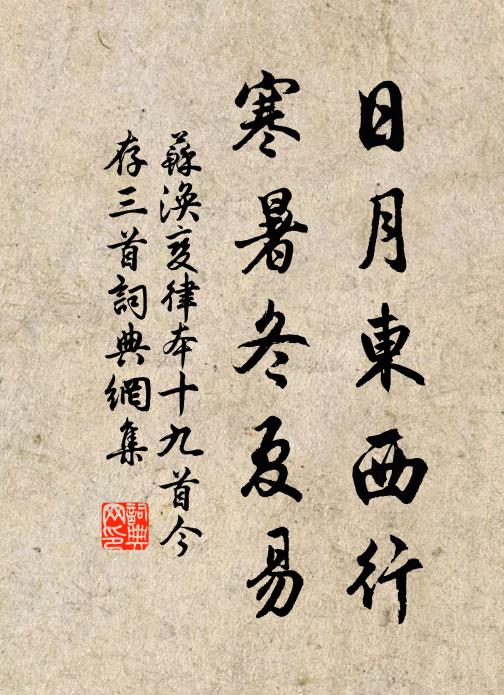 日月東西行
寒暑冬夏易
蘇渙變律本十九首今
存三首詞典網集
詞典
网印